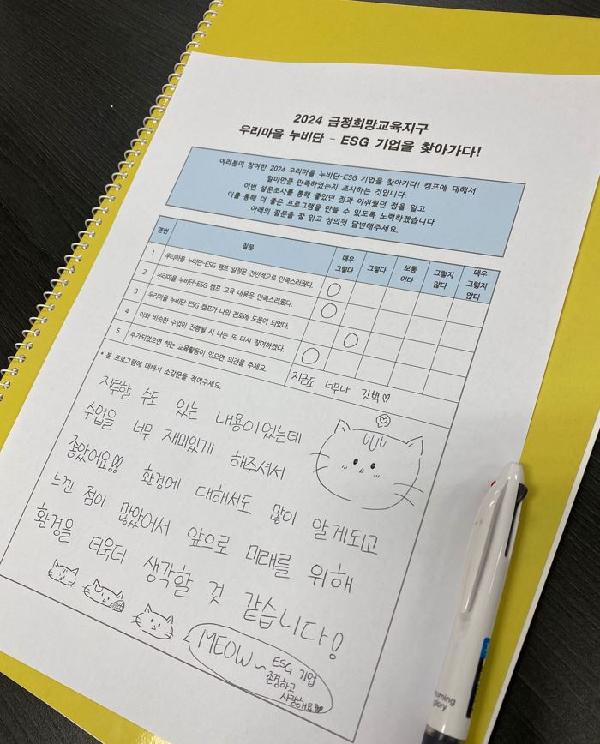 2024 금정희망교육지구
우리마을 누비단 - ESG 기업을 찾아가다!
여러분이 참여한 2024 우리마을 누비단-ESG 기업을 찾아가다! 캠프에 대해서
얼마만큼 만족하였는지 조사하는 것입니다
이번 설문조사를 통해 좋았던 점과 아쉬웠던 점을 알고
다음 통해 더 좋은 프로그램을 만들 수 있도록 노력하겠습니다
아래의 질문을 잘 읽고 성의껏 답변해주세요.
질문 매우 그렇다 그렇다 보통이다 그렇지 않다 매우 그렇지 않다
1 우리마을 누비단-ESG 캠프 일정은 전반적으로 만족스러웠다.
2 우리마을 누비단-ESG 캠프 교육 내용은 만족스러웠다.
3 우리마을 누비단 ESG 캠프가 나의 진로에 도움이 되었다.
4 이와 비슷한 수업이 진행될 시 나는 또 다시 참여하겠다.
5 추가되었으면 하는 교육활동이 있으면 의견을 주세요. 지금도 너무나
* 본 프로그램에 대해서 소감문을 적어주세요.
지루할 수도 있는 내용이었는데
수업을 너무 재미있게 해주셔서
좋았어요!! 환경에 대해서도 많이 알게되고
느낀 점이 많았어서 앞으로 미래를 위해
환경을 더욱더 생각할 것 같습니다!
MEOW~ ESG 기업
존경하고
사랑해요♥